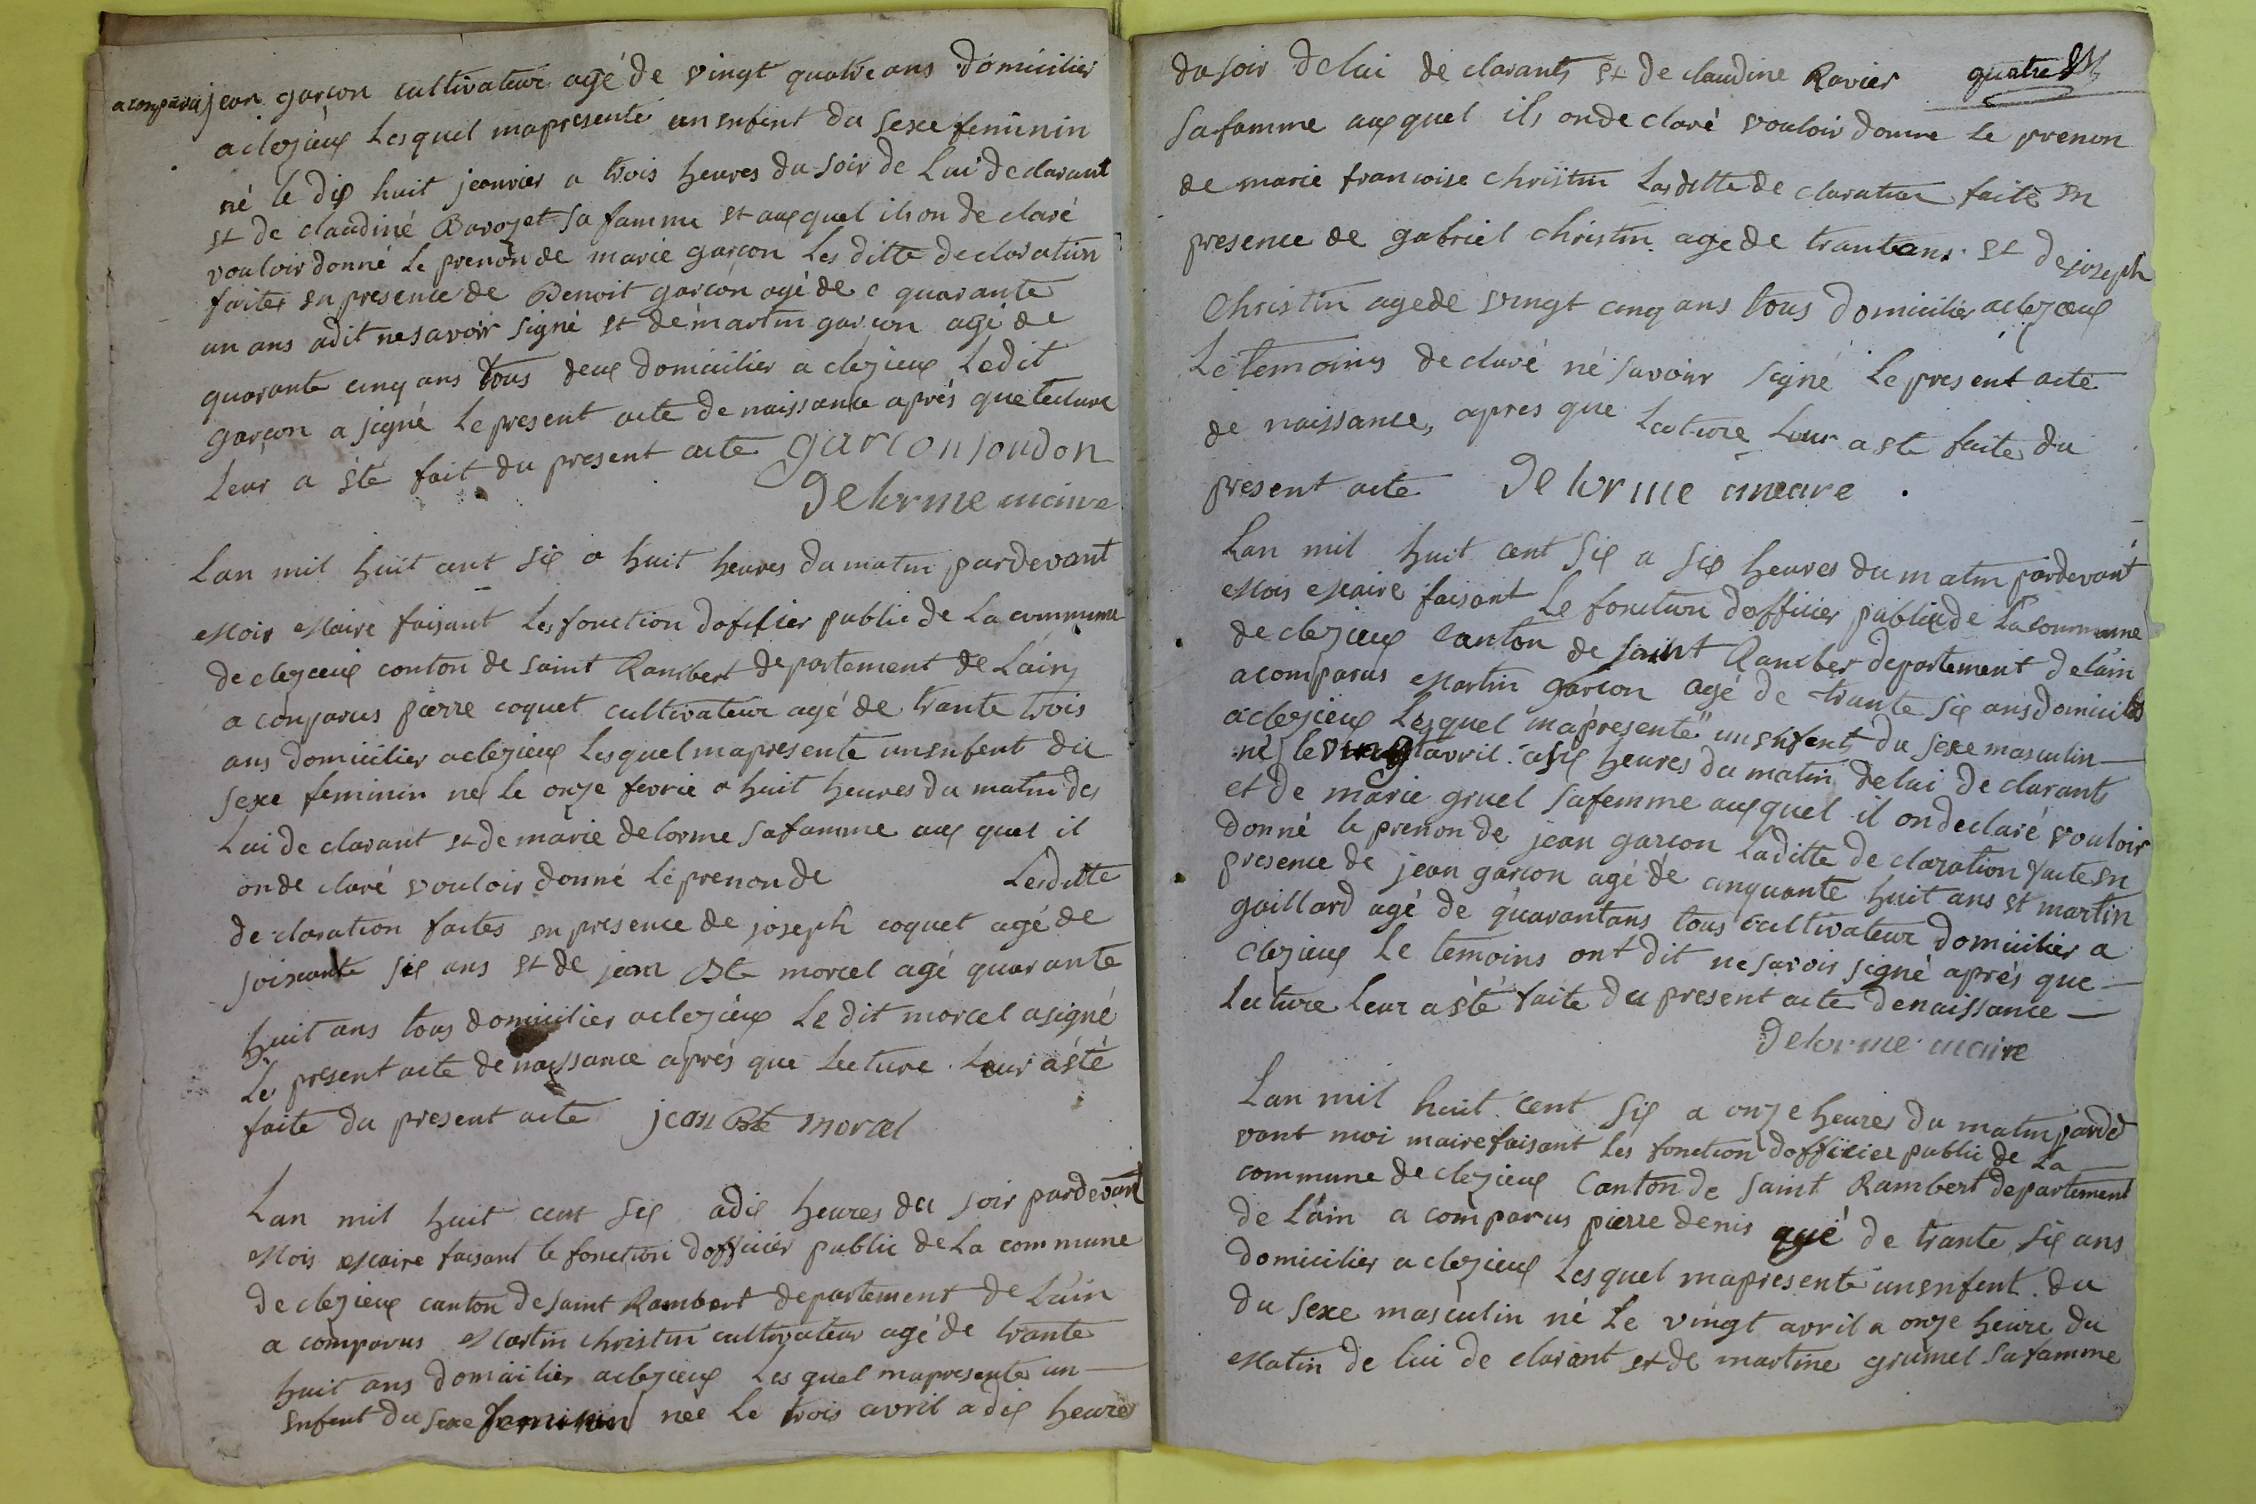 acomparu jean garcon cultivateur agé de vingt quatre ans domicilier
a clezieux Lesquel mapresenté un enfent du sexe feminin
né le dix huit jeanvier a trois heures du soir de Lui declarant
et de claudine Bavozet sa famme et auxquel ils on de claré
vouloir donné Le prenon de marie garcon Les ditte declaration
faites en presence de Benoit garcon agé de c quarante
un ans adit ne savoir signé et de martin garcon agé de
quarante cinq ans tous deux domicilier a clezieux Ledit
garçon a signé Le present acte de naissance aprés que lecture
Leur a été fait du present acte garconjoudon
Delorme maire
Lan mil huit cent six a huit heures du matin pardevant
Mois Maire faisant Les fonction dofficier public de La commune
de clezieux conton de saint Rambert departement de Lain
a conparus pierre coquet cultivateur agé de trante trois
ans domicilier aclezieux Lesquel mapresenté un enfent du
sexe feminin né le onze fevrie a huit heures du matin des
Lui de clarant et de marie delorme safamme aux quel il
on de claré vouloir donné Le prenon de Lesditte
de claration faites en presence de joseph coquet agé de
soixante six ans et de jean Bte morcel agé quarante
huit ans tous domicilier aclezieux Le dit morcel asigné
Le present acte de naissance aprés que Lecture Leur aété
faite du present acte jean Bte morcel
Lan mil huit cent six adix heures du soir pardevant
Mois Maire faisant le fonction dofficier public de La commune
de clezieux canton de saint Rambert departement de Lain
a comparus Martin christin cultivateur agé de trante
huit ans domicilier aclezieux Les quel mapresenté un
enfent du sexe feminin née Le trois avril adix heures
quatre
du soir de lui de clarants et de claudine Ravier
sa famme aux quel ils onde claré vouloir donne Le prenon
de marie francoise christin Lasditte de claration faite en
presence de gabriel christin age de trantans et de joseph
Christin agede vingt cinq ans tous domicilier aclezieux
Le temoins de claré né savoir signé Le present acte
de naissance, apres que Lecture Leur a ste faite du
present acte Delorme maire
Lan mil huit cent six a six heures du matin pardevant
Mois Maire faisant Le fonction dofficier public de La commune
de clezieux canton de saint Ramber departement delain
acomparus Martin garcon agé de trante six ans domicilié
aclezieux Lesquel mapresenté un enfent du sexe masculin
né le vingt avril a six heures du matin de lui de clarants
et de marie gruel safemme auxquel il on declaré vouloir
donné le prenon de jean garcon Laditte de claration faite en
presence de jean garcon agé de cinquante huit ans et martin
gaillard agé de quarantans tous cultivateur domicilier a
clezieux Le temoins ont dit ne savoir signé aprés que
Lecture Leur a été faite du present acte denaissance
Delorme maire
Lan mil huit cent six a onze heures du matin parde
vant moi maire faisant Les fonction dofficier public de La
commune de clezieux Canton de saint Rambert departement
de Lain a comparus pierre denis agé de trante six ans
domicilier a clezieux Lesquel mapresenté un enfent du
du sexe masculin né Le vingt avril a onze heure du
Matin de lui de clarant et de martine grumel safamme